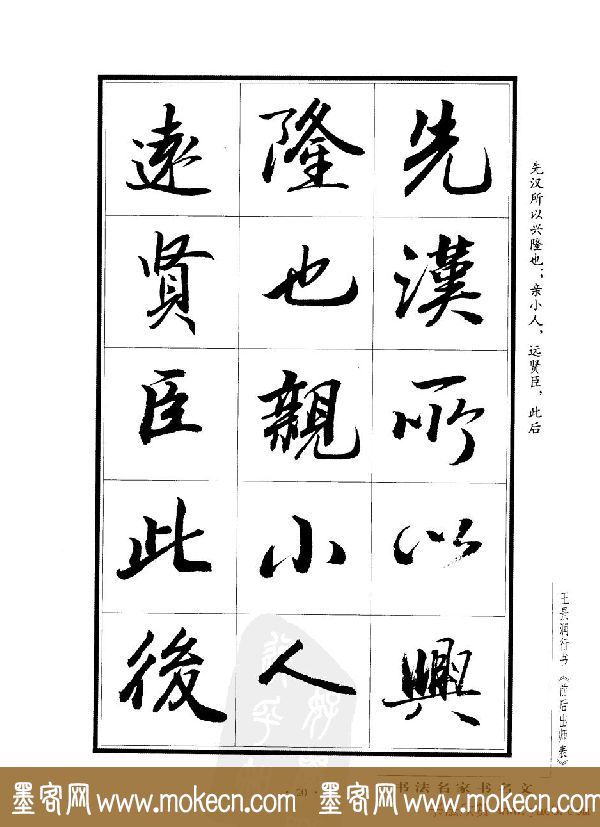 先漢所以興
隆也親小人
遠賢臣此後
先汉所以兴隆也；亲小人，远贤臣，此后
王长润行书《前后出师表》
·20·
书法名家书名文
墨客网 www.mokecn.com 墨客网 www.mokecn.com